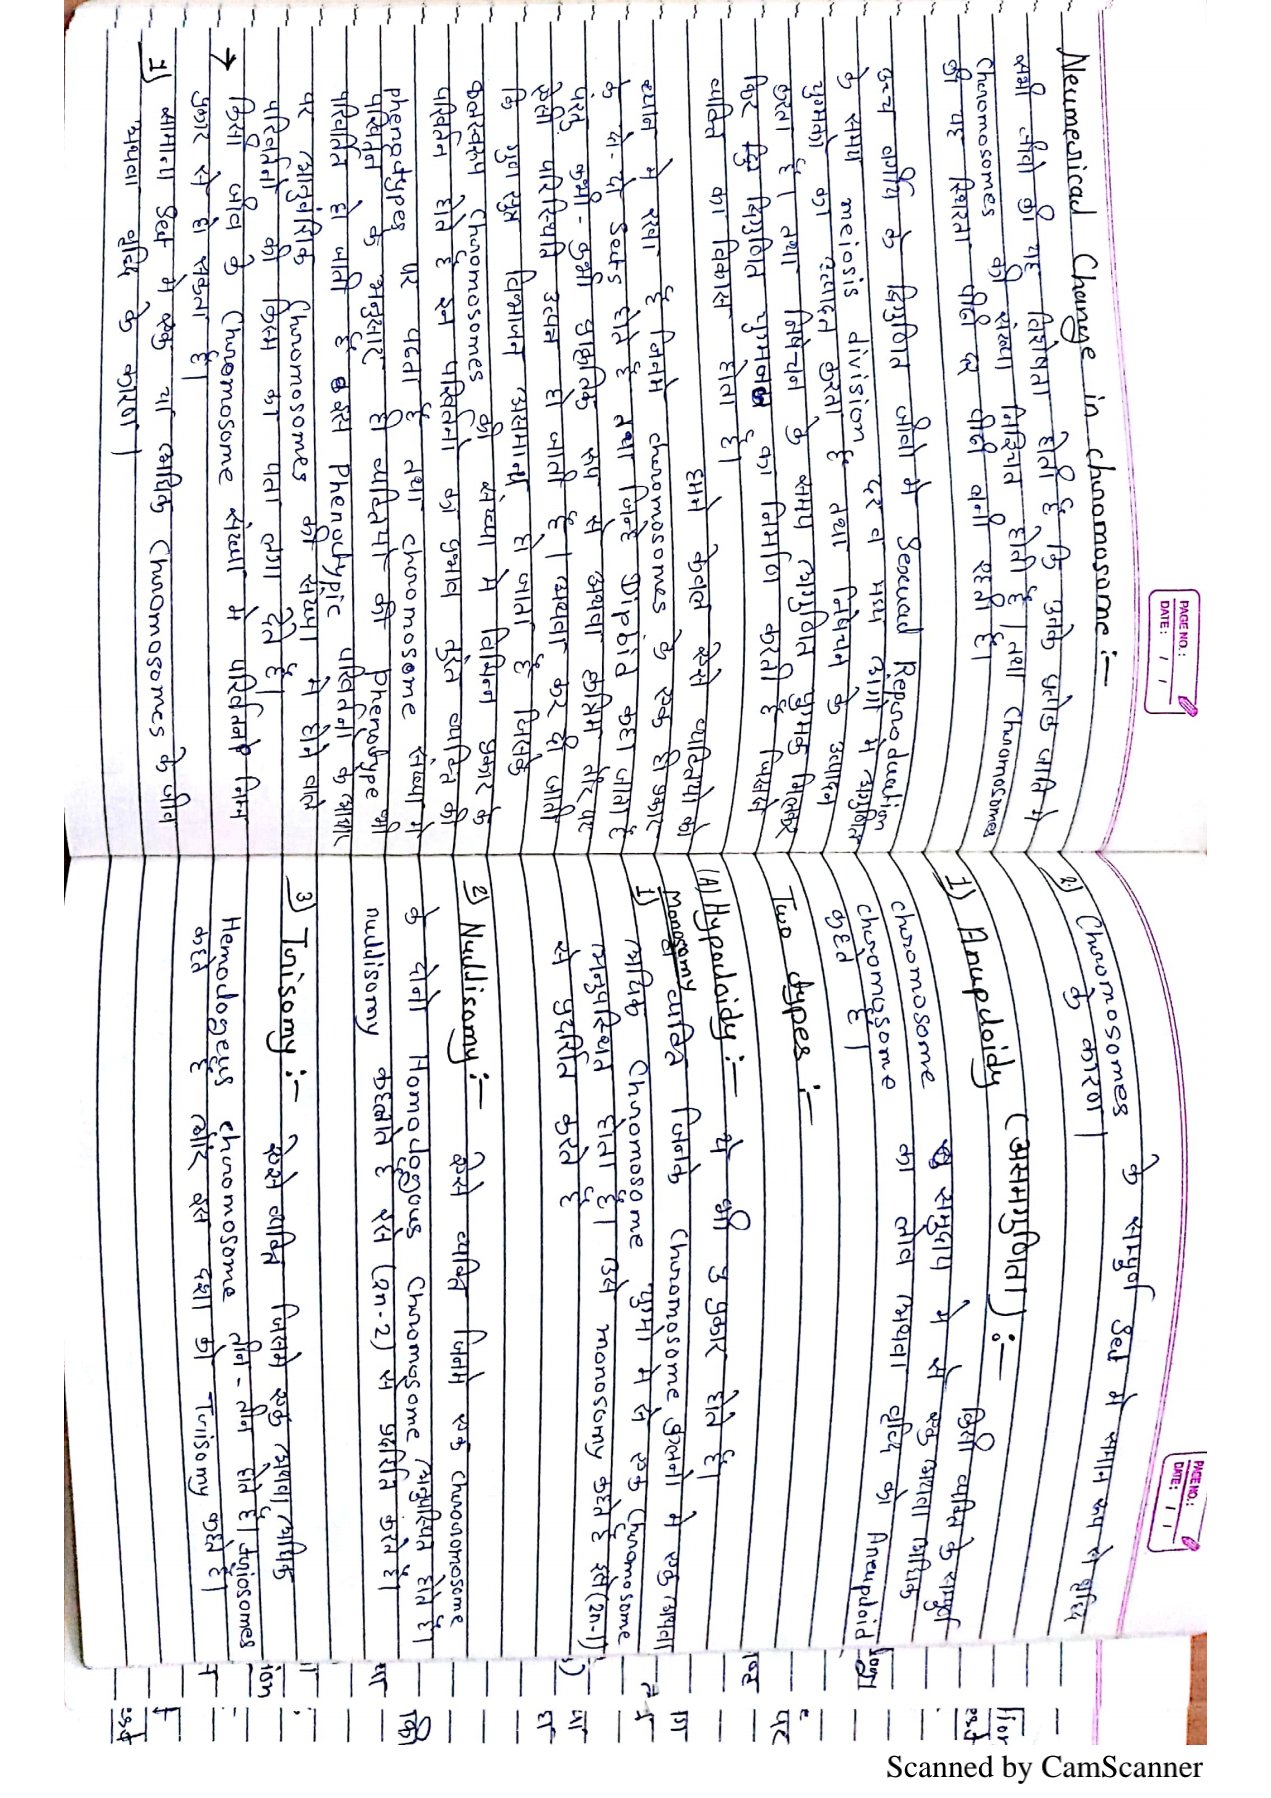 PAGE NO.:
DATE: / /
Neumerical Change in chromosome :—
सभी जीवो की यह विशेषता होती है कि उनके प्रत्येक जाति मे
Chromosomes की संख्या निश्चित होती है। तथा Chromosomes
की यह स्थिरता पीढी दर पीढी बनी रहती है।
उच्च वर्गीय के द्विगुणित जीवो मे Sexual Reproduction
के समय meiosis division द्वारा मध्य अंगो मे अगुणित
युग्मको का उत्पादन करता है तथा निषेचन के उत्पादन
करता है। तथा निषेचन के समय अगुणित युग्मक मिलकर
फिर द्विगुणित युग्मनज का निर्माण करते है जिससे
व्यक्ति का विकास होता है।
हमने केवल ऐसे व्यक्तियो को
ध्यान मे रखा है जिनमे chromosomes के एक ही प्रकार
के दो-दो Sets होते है तथा जिन्हे Diploid कहा जाता है
परंतु कभी-कभी प्राकृतिक रूप से अथवा कृत्रिम तौर पर
ऐसी परिस्थिति उत्पन्न हो जाती है। अथवा कर दी जाती
कि गुणसूत्र विभाजन असमान हो जाता है जिसके
फलस्वरूप Chromosomes की संख्या मे विभिन्न प्रकार के
परिवर्तन होते है इन परिवर्तनो का प्रभाव तुरंत व्यक्ति की
phenotypes पर पडता है तथा chromosome संख्या मे
परिवर्तन के अनुसार ही व्यक्तियो की phenotype भी
परिवर्तित हो जाती है इस Phenotypic परिवर्तनो के आधार
पर आनुवंशिक Chromosomes की संख्या मे होने वाले
परिवर्तनो की किस्म का पता लगा लेते है।
→ किसी जीव के Chromosome संख्या मे परिवर्तन निम्न
प्रकार से हो सकता है।
1) सामान्य Set मे एक या अधिक Chromosomes के
अथवा वृद्धि के कारण।
PAGE NO.:
DATE: / /
2) Chromosomes के सम्पूर्ण Set मे समान रूप से वृद्धि
के कारण।
1) Anupdoidy (असमगुणिता) :—
किसी व्यक्ति के सम्पूर्ण
chromosome समुदाय मे से एक अथवा अधिक
chromosome का लोप अथवा वृद्धि को Aneuploid
कहते है।
Two types :—
(A) Hypodoidy :— ये भी 3 प्रकार होते है।
1) Monosomy व्यक्ति जिनके Chromosome में एक अथवा
अधिक Chromosome युग्मो मे से एक Chromosome
अनुपस्थित होता है। उसे monosomy कहते है इसे (2n-1)
से प्रदर्शित करते है
2) Nullisomy :— ऐसे व्यक्ति जिनमे एक chromosome
के दोनो Homologous Chromosome अनुपस्थित होते है।
nullisomy कहलाते है इसे (2n-2) से प्रदर्शित करते है।
3) Trisomy :— ऐसे व्यक्ति जिसमे एक अथवा अधिक
Hemodogeus chromosome तीन-तीन होते है। trisosomes
कहते है और इस दशा को Trisomy कहते है।
Scanned by CamScanner